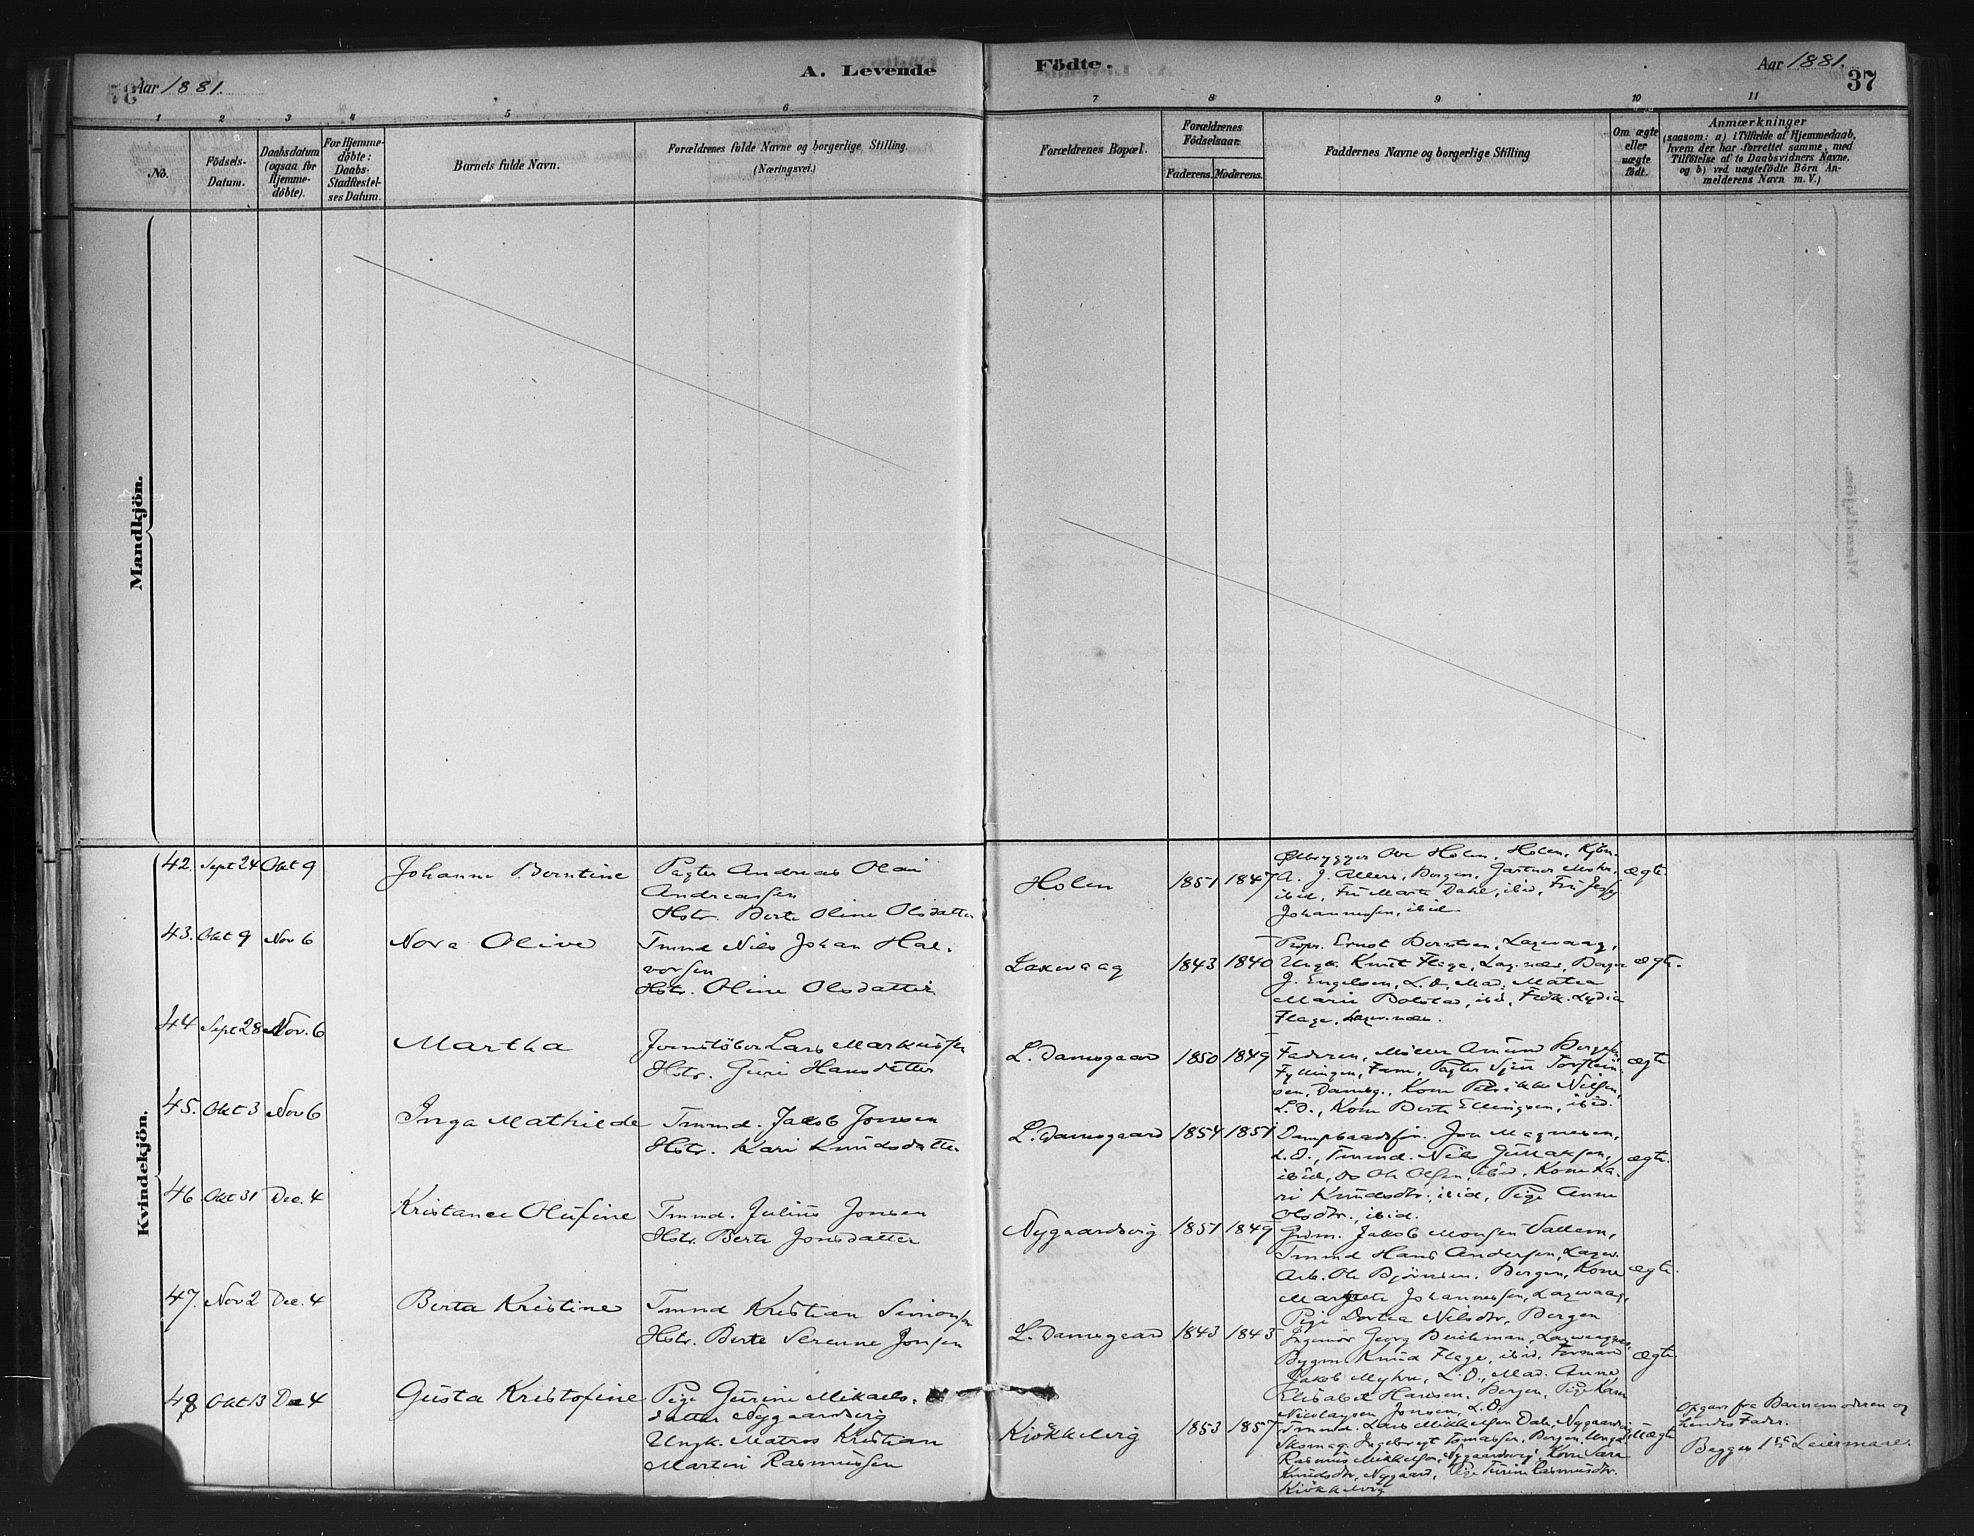 Aar 1881.
A. Levende
Födte.
Aar 1881.
37
1 2 3 4 5 6 7 8 9 10 11
No.
Födsels-
Datum.
Daabsdatum
(ogsaa for
Hjemme-
döbte).
For Hjemme-
döbte:
Daabs-
Stadfæstel-
ses Datum.
Barnets fulde Navn.
Forældrenes fulde Navne og borgerlige Stilling.
(Næringsvei.)
Forældrenes Bopæl.
Forældrenes
Födselsaar.
Faderens. Moderens.
Faddernes Navne og borgerlige Stilling
Om ægte
eller
uægte
födt.
Anmærkninger
(saasom: a) i Tilfælde af Hjemmedaab,
hvem der har forrettet samme, med
Tilföielse af to Daabsvidners Navne.
og b) ved uægtefödte Börn An-
melderens Navn m. V.)
Mandkjön.
Kvindekjön.
42. Sept 24 Okt 9
Johanne Berntine
Pagter Andreas Olai
Andreassen
Hstr. Berte Oline Olsdatter
Holen
1851 1847
Ølbrygger Ole Holen, Holen,
A. J. Allers, Bergen, Gartner Mohr,
ibid, Frü Marte Dahl, ibid, Frü
Johannessen, ibid
ægte
43. Okt 9 Nov 6
Nora Olive
Tmmd Nils Johan Hal-
vorsen
Hstr. Oline Olsdatter
Laxevaag
1843 1840
Propr. Ernst Berntsen, Laxevaag,
Ungk. Knut Flage, Laxevaag,
J. Engelsen, L. D., Mad. Matea
Marie Bolstad, ibid, Frök. Lydia
Flage,
ægte.
44 Sept 28 Nov. 6
Martha
Lars Markussen
Hstr. Güri Hansdatter
L. Damsgaard
1850 1849
Faderen, Möller
Fyllingen, Pagter Torstein-
sen, Damsg., Kone Nilsen,
L. D., Kone Berte Ellingsen, ibid.
ægte
45. Okt 3 Nov 6
Inga Mathilde
Tmmd. Jakob Jonsen
Hstr. Kari Knudsdatter
L. Damsgaard
1854 1851
Jon Magnesen,
L. D., Tmmd. Nils
ibid, Do Ole Olsen, ibid, Kone Ka-
ri Knudsdtr, ibid, Pige Anne
Olsdtr., ibid.
ægte.
46 Okt 31 Dec. 4
Kristance Olufine
Tmmd. Julius Jonsen
Hstr. Berte Jonsdatter
Nygaardsvig
1851 1849
Grdm. Jakob Monsen Vallem,
Tmmd Hans Andersen, Laxev.
Arb. Ole Björnsen, Bergen, Kone
Margrete Johannessen, Laxevaag,
Pige Dortea Nilsdtr, Bergen
ægte.
47. Nov 2 Dec. 4
Berta Kristine
Tmmd Kristian Simonsen
Hstr. Berte Serenne Jonsen
L. Damsgaard
1843 1843
Ingeniör Georg
Bygm Knud Flage, ibid, Formand
Jakob Myhre, L. D., Mad. Anne
Elisabet Hansen, Bergen, Pige Karen
Nicolaysen Jonsen, L. D.
ægte.
48 Okt 13 Dec 4
Gusta Kristofine
Pige Gurine Mikaels-
datter Nygaardsvig
Ungk. Matros Kristian
Martin Rasmussen
Kjökkelvig
1853 1857
Tmmd. Lars Mikkelsen Dale, Nygaardsvig,
Skomag. Ingebregt Tomassen, Bergen, Ungk.
Rasmus Mikkelsen, Nygaardsvig, Kone Sara
Knudsdtr, Nygaard, Pige Rasmusdtr.
Kjökkelvig
uægte
Opgave fra Barnemoderen og
hendes Fader.
Begges 1ste Leiermaal.